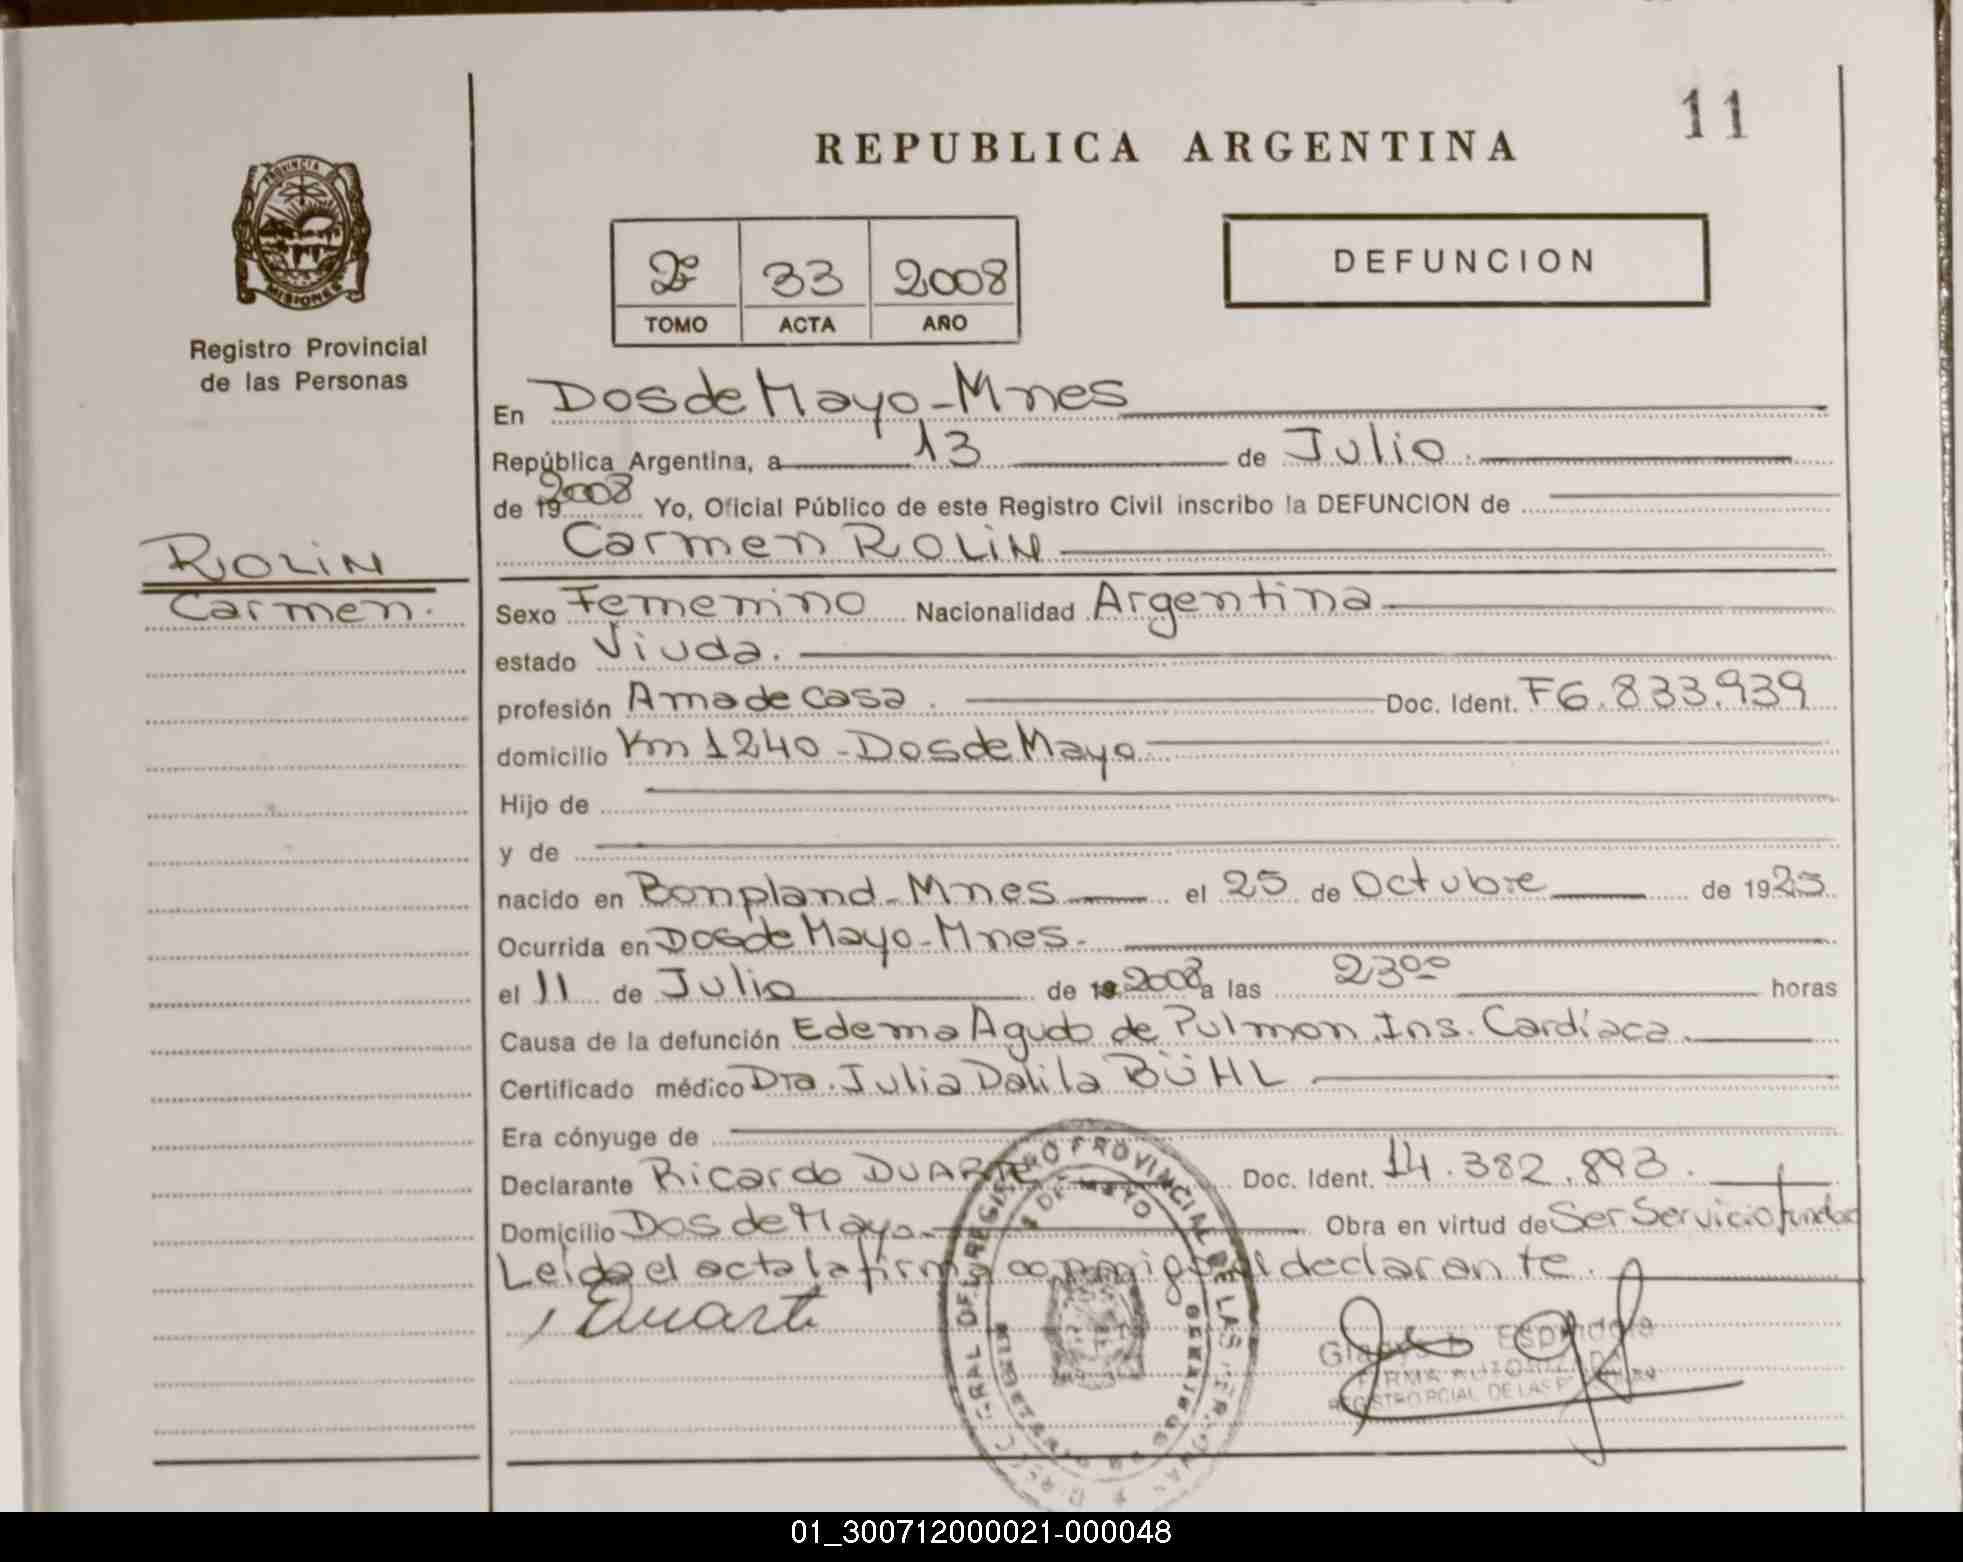 11
REPUBLICA ARGENTINA
PROVINCIA DE
MISIONES
Registro Provincial
de las Personas
2º 33 2008
TOMO ACTA AÑO
DEFUNCION
En Dos de Mayo - Mnes
República Argentina, a 13 de Julio.
de 19 2008 Yo, Oficial Público de este Registro Civil inscribo la DEFUNCION de
Carmen ROLIN
ROLIN
Carmen.
Sexo Femenino Nacionalidad Argentina
estado Viuda.
profesión Ama de casa. Doc. Ident. F6.833.939
domicilio Km 1240 - Dos de Mayo
Hijo de
y de
nacido en Bonpland - Mnes el 25 de Octubre de 1925
Ocurrida en Dos de Mayo - Mnes.
el 11 de Julio de 19 2008 a las 23ºº horas
Causa de la defunción Edema Agudo de Pulmon. Ins. Cardíaca.
Certificado médico Dra. Julia Dalila BÜHL
Era cónyuge de
Declarante Ricardo DUARTE Doc. Ident. 14.382.893.
Domicilio Dos de Mayo. Obra en virtud de Ser Servicio
Leida el acta la firma conmigo el declarante.
Duarte
REGISTRO PROVINCIAL DE LAS
DE MAYO
Espindola
FIRMA AUTORIZADA
REGISTRO PCIAL. DE LAS
01_300712000021-000048